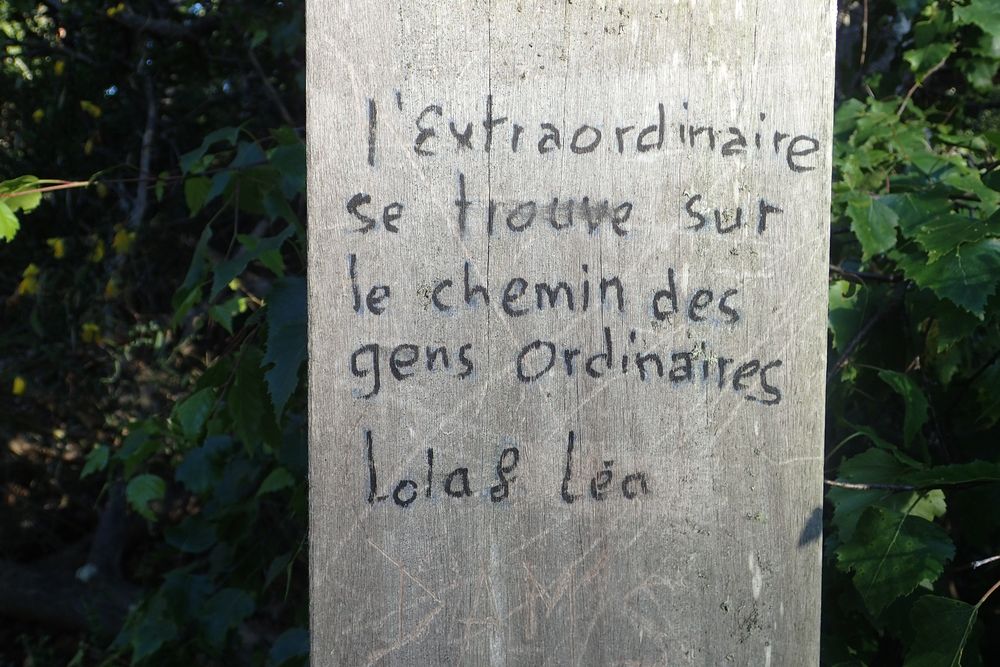 l'Extraordinaire
se trouve sur
le chemin des
gens ordinaires
Lola & Léa